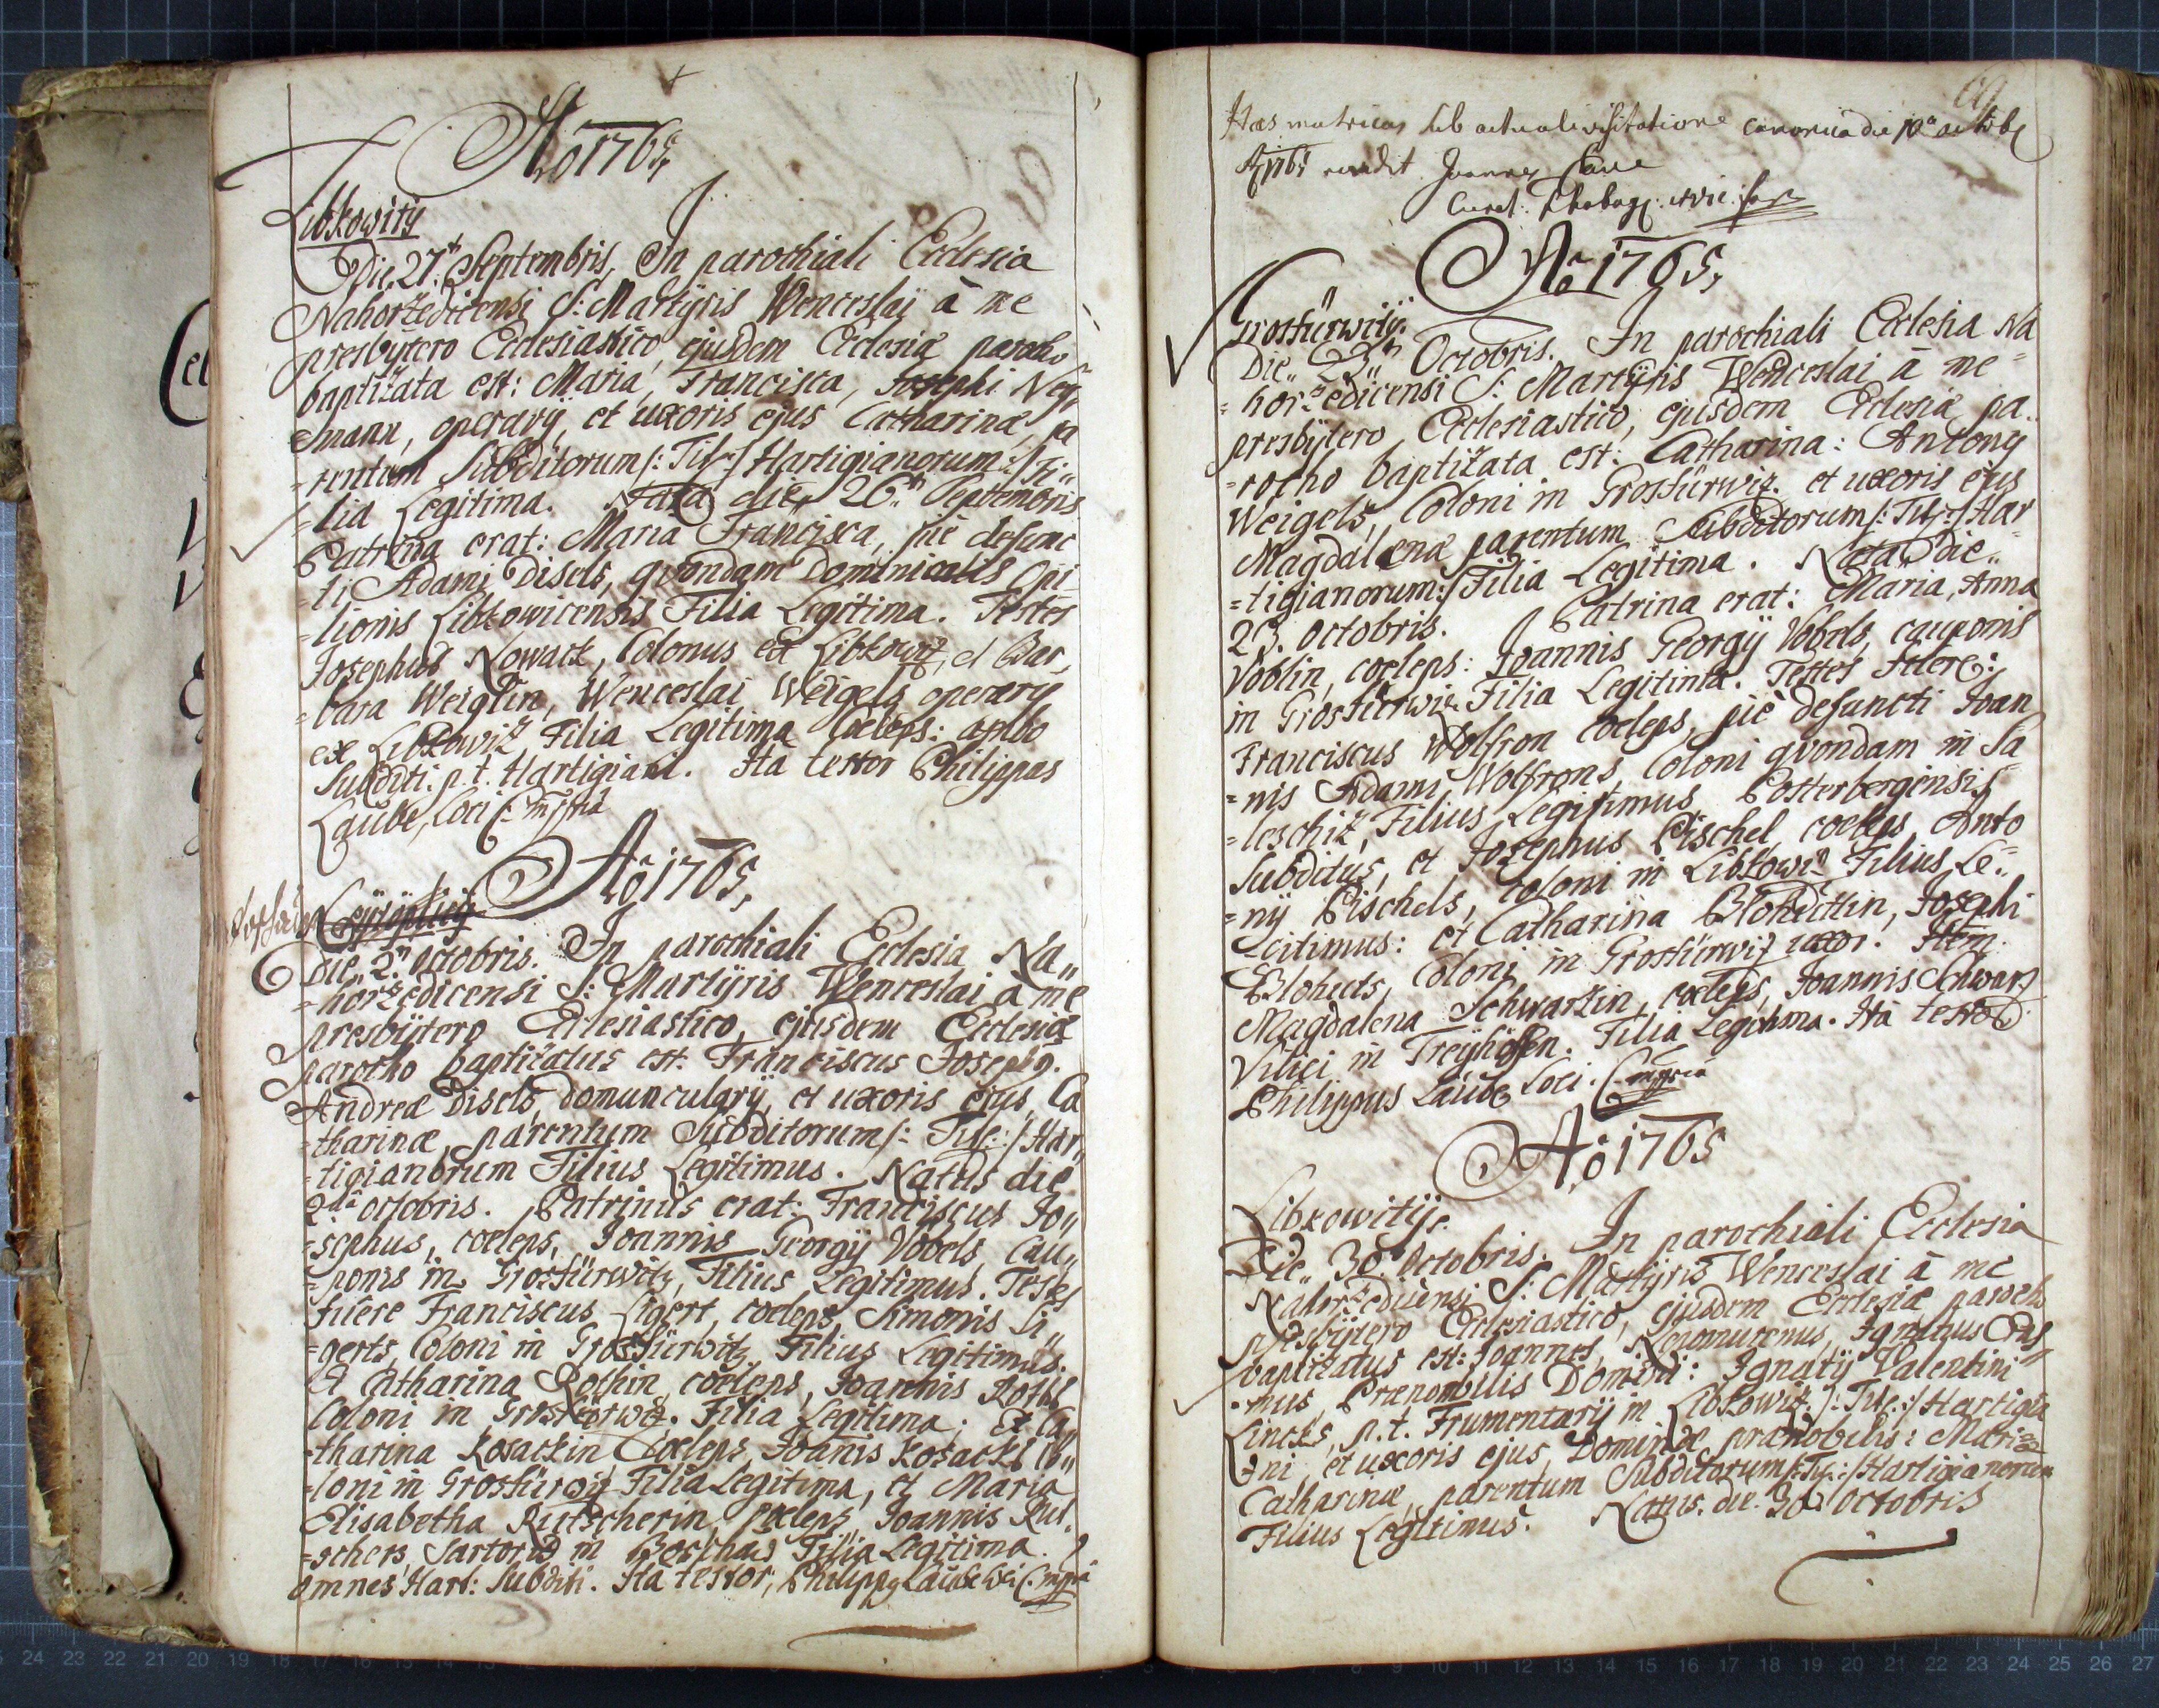 Aô 1765,
Libkowitz
Die 27 Septembris, In parochiali Ecclesia
Nahoržedicensi S: Martyris Wenceslaij à me
presbytero Ecclesiastico ejusdem Ecclesiæ parocho
baptižata est: Maria, Francisca, Josephi Neÿ,
=mann, operarÿ, et uxoris ejus Catharinæ, pa
=rentum Subditorum /: Tit: / Hartigianorum :/ Fi=
=lia Legitima. Nata die 26 Septembris
Patrina erat: Maria Francisca, piè defunc
=ti Adami Disels, qvondam Dominicalis Opi=
=lionis Libkowicensis Filia Legitima. Testes
Josephus Nowack, Colonus ex Libkowitz, et Bar,
=bara Weiglin, Wenceslai Weigels operarÿ
ex Libkowiž Filia Legitima Cœlebs: ambo
Subditi p. t. Hartigiani. Ita testor Philippus
Laube, Loci C: mpria
Aô 1765,
Die 2 Octobris. In parochiali Ecclesia Na,,
=horžedicensi S: Martÿris Wenceslai à me
presbÿtero Ecclesiastico, ejusdem Ecclesiæ
parocho baptižatus est. Franciscus Joseph9.
Andreæ Disels, domuncularÿ, et uxoris ejus, Ca
=tharinæ, parentum Subditorum /: Tit: :/ Har,,
=tigianorum Filius Legitimus. Natus die
2dâ octobris. Patrinus erat: Franciscus Jo,,
=sephus, cœlebs, Joannis Georgÿ Vobels, Cau,,
=ponis in Grosfürwitz, Filius Legitimus. Testes
fuere Franciscus Ligert, cœlebs, Simonis Li,,
=gerts, Coloni in Grosfürwitz Filius Legitimus.
Et Catharina Rothin cœlebs, Joannis Roths
Coloni in Grosfürwiž. Filia Legitima; Et Ca,,
=tharina Kosackin Cœlebs Joannis Kosacks Co,,
=loni in Grosfürwiž Filia Legitima, et Maria
Elisabetha Rutscherin, cœlebs Joannis Rut,
=schers Sartoris in Filia Legitima.
omnes Hart: Subditi. Ita testor, Philipp9 Laube Loci C. mpria
Has matricas sub actuali visitatione canonica die 10a octobr
Aô 1765 Joannes
Curat:
Aô 1765,
Grosfürwitz.
Die 23 Octobris. In parochiali Ecclesia Na
=horžedicensi S: Martÿris Wenceslai à me=
presbÿtero Ecclesiastico, ejusdem Eclesiæ pa=
=rocho baptižata est: Catharina: Antonÿ
Weigels, Coloni in Grosfürwiz. et uxoris ejus
Magdalenæ parentum Subditorum /: Tit: :/ Har
=tigianorum :/ Filia Legitima. Nata die
23. Octobris. Patrina erat: Maria, Anna
Voblin, cœlebs: Joannis Georgÿ Vobels, cauponis
in Grosfürwiz. Filia Legitima. Testes fuere:
Franciscus Wolfron cœlebs, piè defuncti Joan
=nis Adami Wolfrons, Coloni qvondam in Sa=
=leschiž, Filius Legitimus Posterbergensis
Subditus, et Josephus Pischel, cœlebs Anto
=nÿ Pischels, coloni in Libkowiž Filius Le=
=gitimus: et Catharina Blohuttin, Josephi
Blohuts, Coloni in Grosfürwiž uxor. Item
Magdalena Schwartzin, cœlebs, Joannis Schwarz
Vilici in Treÿhöffen. Filia Legitima. Ita testor
Philippus Laube Loci C. mpria
Aô 1765
Libkowitz.
Die 30 Octobris. In parochiali Ecclesia
Nahoržedicensi S: Martÿris Wenceslai à me
presbÿtero Ecclesiastico, ejusdem Ecclesiæ parocho
baptižatus est: Joannes, Nepomucenus, Ignatius
=mus, Prænobilis Domini: Ignatÿ Valentini
Lincks, p. t. Frumentarÿ in Libkowiž. /: Tit: :/ Hartigia
=ni, et uxoris ejus, Dominæ prænobilis: Mariæ
Catharinæ, parentum Subditorum /: Tit: :/ Hartigianorum
Filius Legitimus. Natus die 30 Octobris